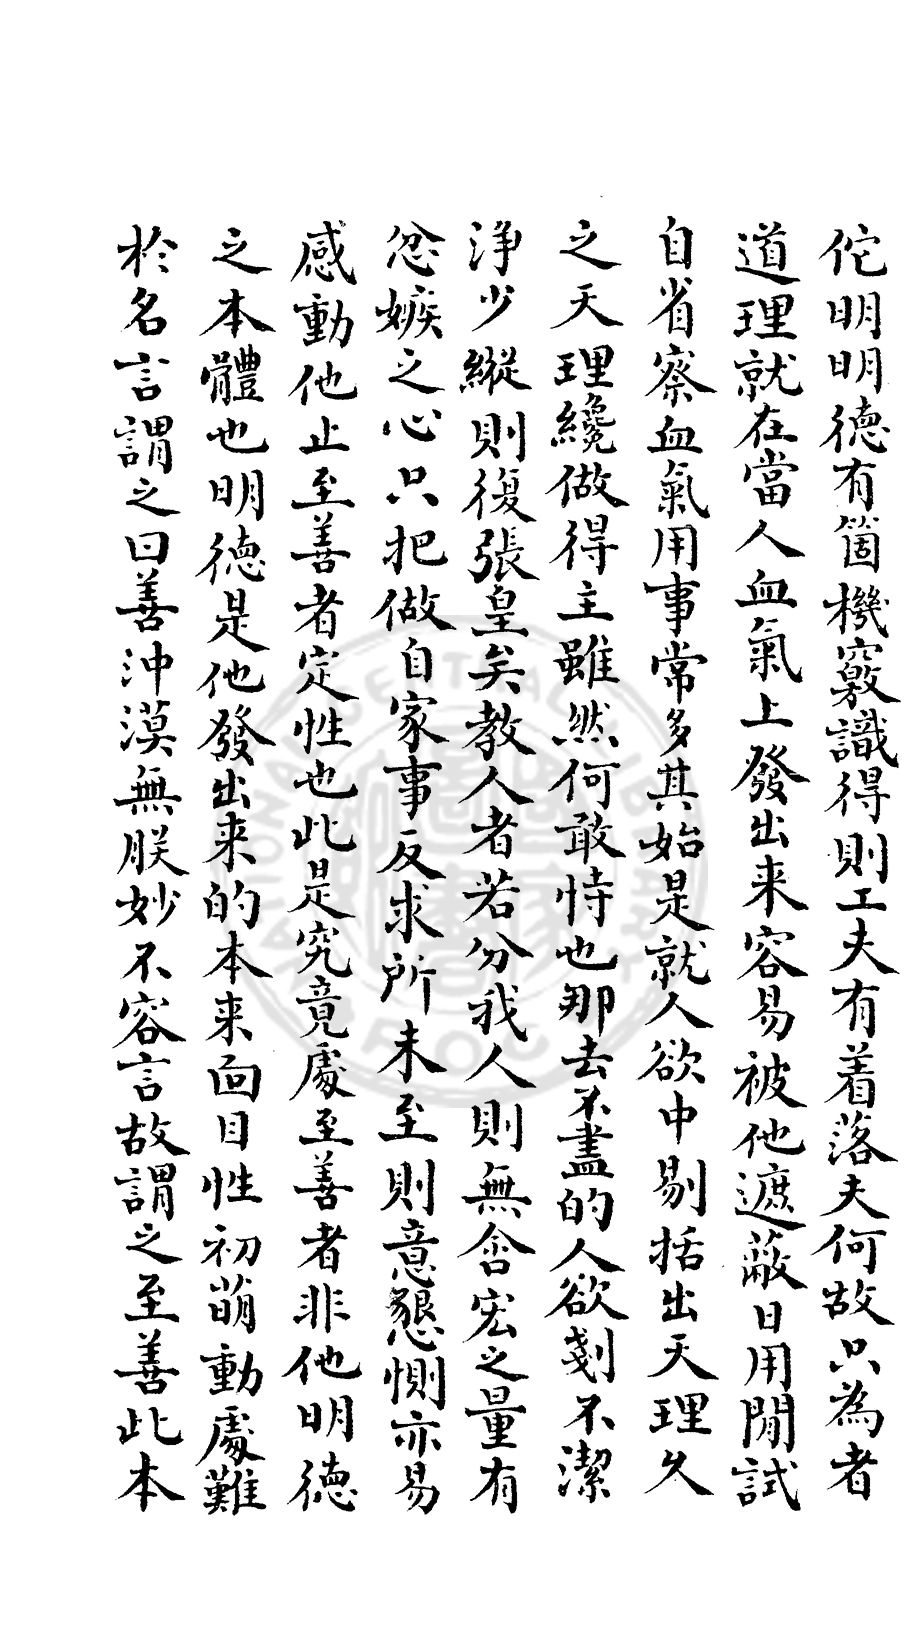 佗明明德有箇機竅識得則工夫有着落夫何故只為者
道理就在當人血氣上發出来容易被他遮蔽日用閒試
自省察血氣用事常多其始是就人欲中剔括出天理久
之天理纔做得主雖然何敢恃也那去不盡的人欲剗不潔
淨少縱則復張皇矣教人者若分我人則無含宏之量有
忿嫉之心只把做自家事反求所未至則意懇惻亦易
感動他止至善者定性也此是究竟處至善者非他明德
之本體也明德是他發出来的本来面目性初萌動處難
於名言謂之曰善沖漠無朕妙不容言故謂之至善此本